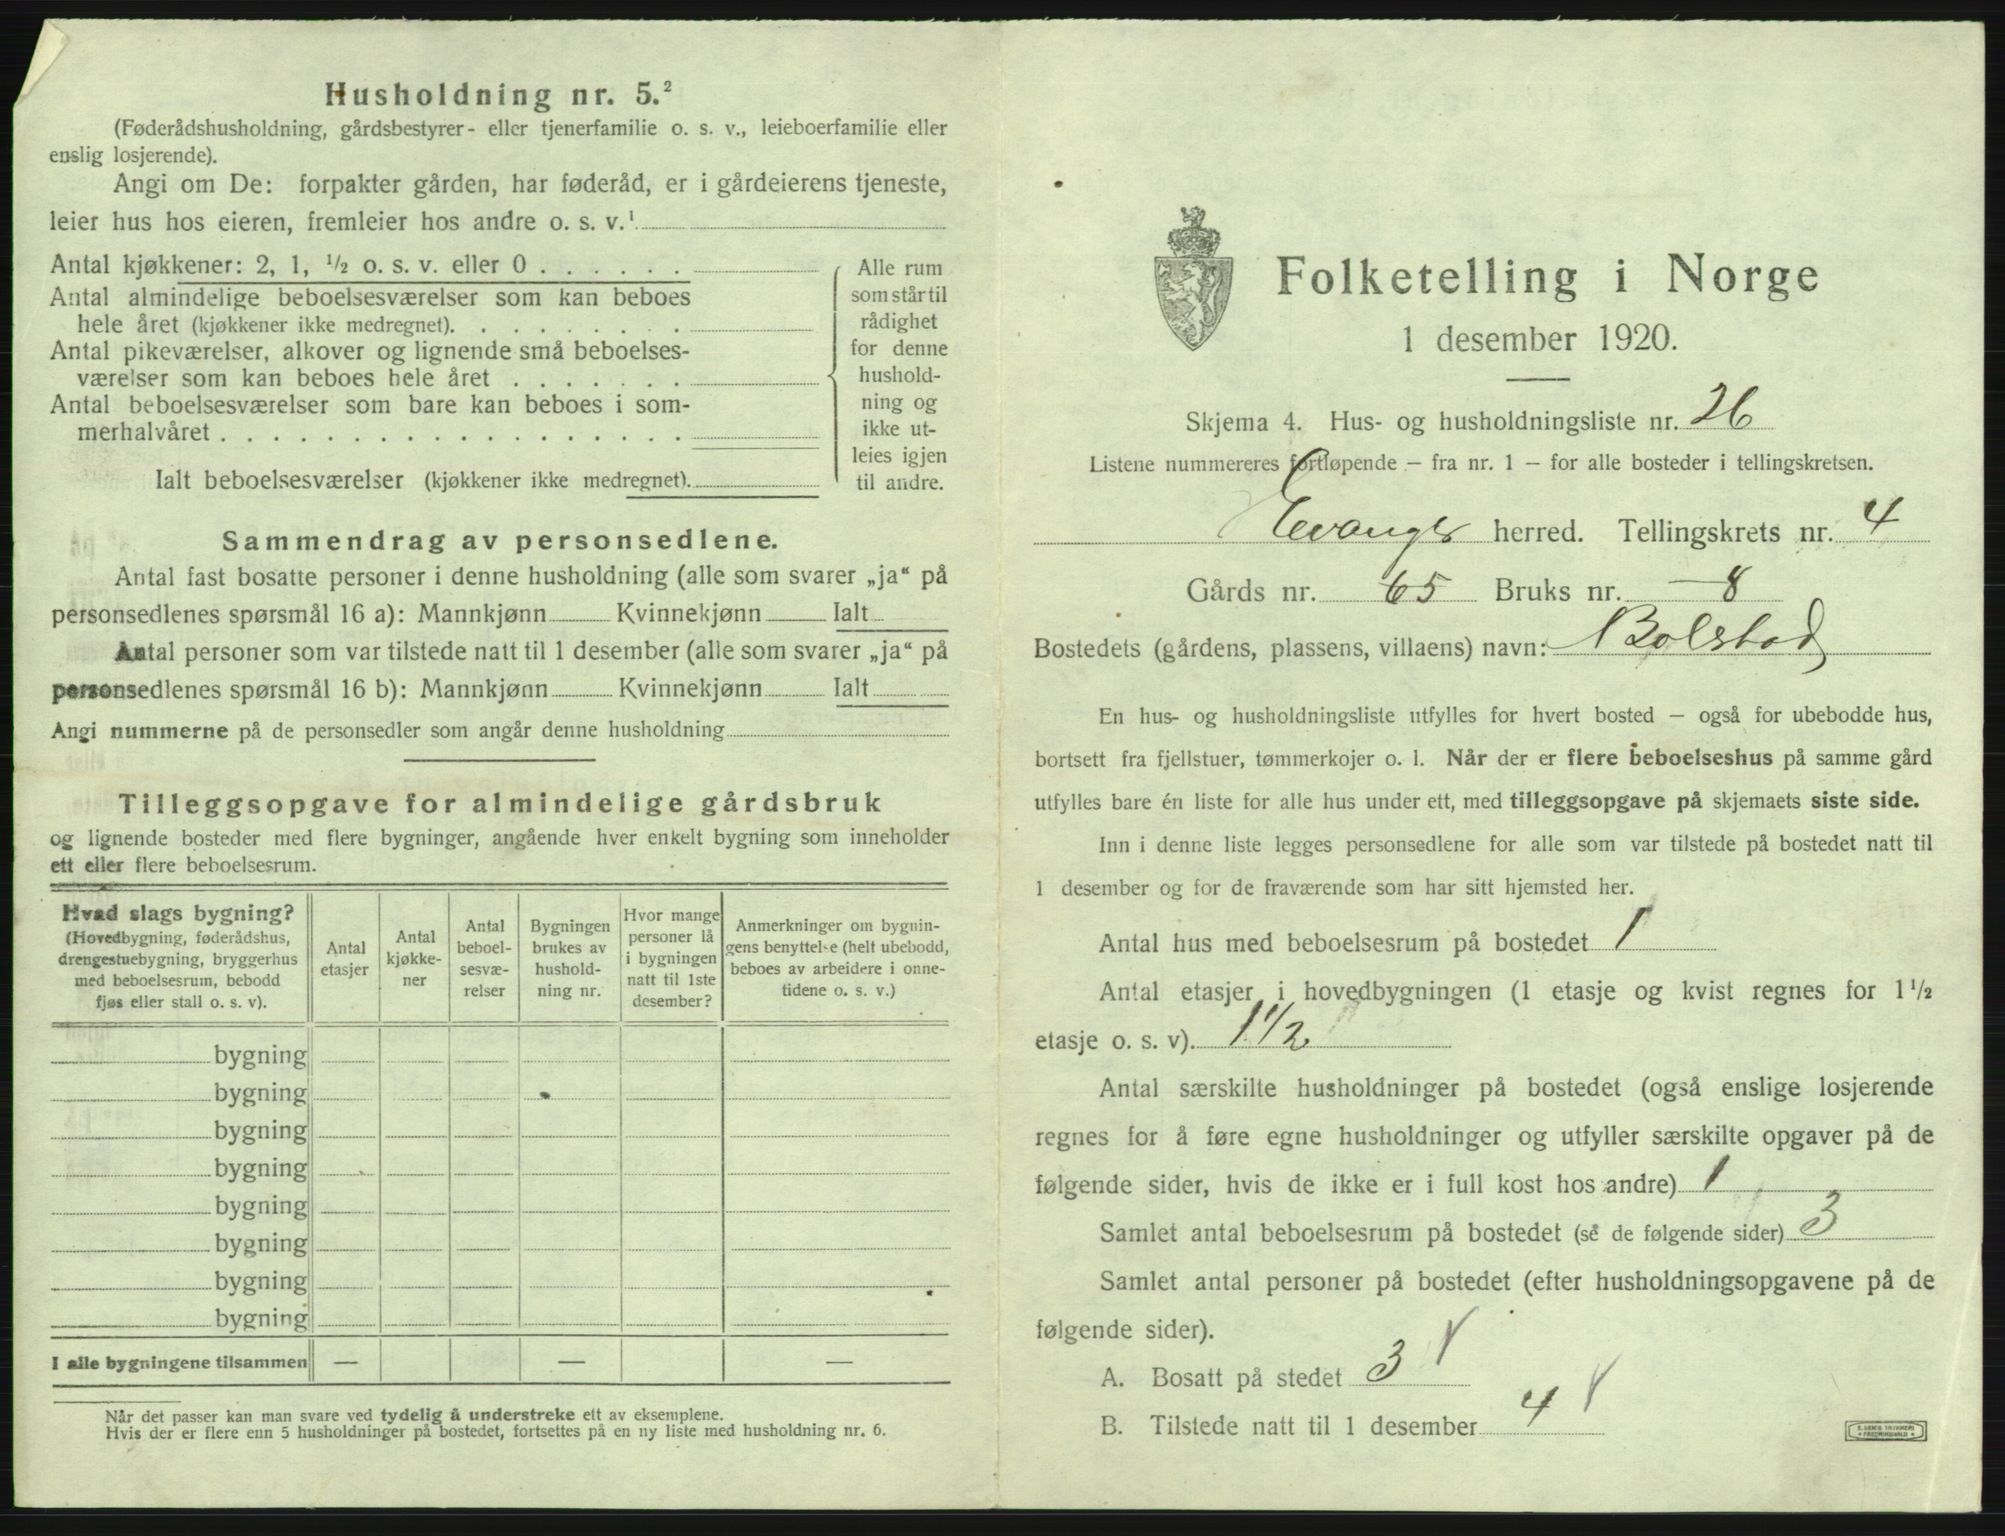 Husholdning nr. 5.²
(Føderådshusholdning, gårdsbestyrer- eller tjenerfamilie o. s. v., leieboerfamilie eller
enslig losjerende).
Angi om De: forpakter gården, har føderåd, er i gårdeierens tjeneste,
leier hus hos eieren, fremleier hos andre o. s. v.¹
Antal kjøkkener: 2, 1, ½ o. s. v. eller 0 . . . . . .
Antal almindelige beboelsesværelser som kan beboes
hele året (kjøkkener ikke medregnet). . . . . . . . .
Antal pikeværelser, alkover og lignende små beboelses-
værelser som kan beboes hele året . . . . . . .
Antal beboelsesværelser som bare kan beboes i som-
merhalvåret . . . . . . . . . . . . . . . . . .
Ialt beboelsesværelser (kjøkkener ikke medregnet).
Alle rum
som står til
rådighet
for denne
hushold-
ning og
ikke ut-
leies igjen
til andre.
Sammendrag av personsedlene.
Antal fast bosatte personer i denne husholdning (alle som svarer „ja“ på
personsedlenes spørsmål 16 a): Mannkjønn Kvinnekjønn Ialt
Antal personer som var tilstede natt til 1 desember (alle som svarer „ja“ på
personsedlenes spørsmål 16 b): Mannkjønn Kvinnekjønn Ialt
Angi nummerne på de personsedler som angår denne husholdning
Tilleggsopgave for almindelige gårdsbruk
og lignende bosteder med flere bygninger, angående hver enkelt bygning som inneholder
ett eller flere beboelsesrum.
Hvad slags bygning?
(Hovedbygning, føderådshus,
drengestuebygning, bryggerhus
med beboelsesrum, bebodd
fjøs eller stall o. s. v).
Antal
etasjer
Antal
kjøkke-
ner
Antal
beboel-
sesvæ-
relser
Bygningen
brukes av
hushold-
ning nr.
Hvor mange
personer lå
i bygningen
natt til 1ste
desember?
Anmerkninger om bygnin-
gens benyttelse (helt ubebodd,
beboes av arbeidere i onne-
tidene o. s. v.)
bygning
bygning
bygning
bygning
bygning
bygning
bygning
bygning
I alle bygningene tilsammen — — —
Når det passer kan man svare ved tydelig å understreke ett av eksemplene.
Hvis der er flere enn 5 husholdninger på bostedet, fortsettes på en ny liste med husholdning nr. 6.
Folketelling i Norge
1 desember 1920.
Skjema 4. Hus- og husholdningsliste nr. 26
Listene nummereres fortløpende – fra nr. 1 – for alle bosteder i tellingskretsen.
Evanger herred. Tellingskrets nr. 4
Gårds nr. 65 Bruks nr. 8
Bostedets (gårdens, plassens, villaens) navn: Bolstad
En hus- og husholdningsliste utfylles for hvert bosted – også for ubebodde hus,
bortsett fra fjellstuer, tømmerkojer o. l. Når der er flere beboelseshus på samme gård
utfylles bare én liste for alle hus under ett, med tilleggsopgave på skjemaets siste side.
Inn i denne liste legges personsedlene for alle som var tilstede på bostedet natt til
1 desember og for de fraværende som har sitt hjemsted her.
Antal hus med beboelsesrum på bostedet 1
Antal etasjer i hovedbygningen (1 etasje og kvist regnes for 1½
etasje o. s. v). 1½
Antal særskilte husholdninger på bostedet (også enslige losjerende
regnes for å føre egne husholdninger og utfyller særskilte opgaver på de
følgende sider, hvis de ikke er i full kost hos andre) 1
Samlet antal beboelsesrum på bostedet (se de følgende sider) 3
Samlet antal personer på bostedet (efter husholdningsopgavene på de
følgende sider).
A. Bosatt på stedet 3
B. Tilstede natt til 1 desember 4